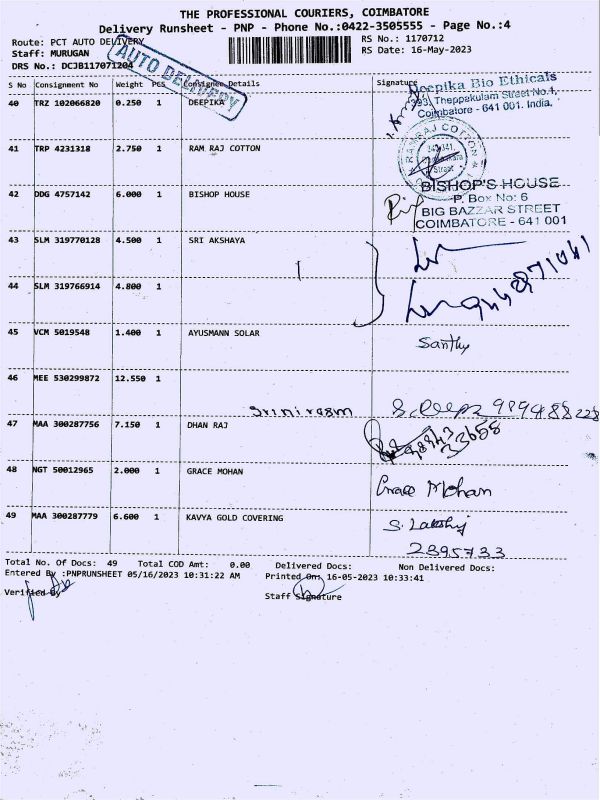 THE PROFESSIONAL COURIERS, COIMBATORE
Delivery Runsheet - PNP - Phone No.:0422-3505555 - Page No.:4
Route: PCT AUTO DELIVERY
RS No.: 1170712
Staff: MURUGAN
RS Date: 16-May-2023
DRS No.: DCJB117071204
AUTO DELIVERY
S No Consignment No Weight PCS Consignee Details Signature
40 TRZ 102066820 0.250 1 DEEPIKA
Deepika Bio Ethicals
393, Theppakulam Street No.4,
Coimbatore - 641 001. India.
41 TRP 4231318 2.750 1 RAM RAJ COTTON
RAMRAJ COTTON
Street
42 DDG 4757142 6.000 1 BISHOP HOUSE
BISHOP'S HOUSE
P. Box No: 6
BIG BAZZAR STREET
COIMBATORE - 641 001
43 SLM 319770128 4.500 1 SRI AKSHAYA
44 SLM 319766914 4.800 1
45 VCM 5019548 1.400 1 AYUSMANN SOLAR
Santhy
46 MEE 530299872 12.550 1
47 MAA 300287756 7.150 1 DHAN RAJ
48 NGT 50012965 2.000 1 GRACE MOHAN
Grace Mohan
49 MAA 300287779 6.600 1 KAVYA GOLD COVERING
2395733
Total No. Of Docs: 49 Total COD Amt: 0.00 Delivered Docs: Non Delivered Docs:
Entered By :PNPRUNSHEET 05/16/2023 10:31:22 AM Printed On: 16-05-2023 10:33:41
Verified By
Staff Signature